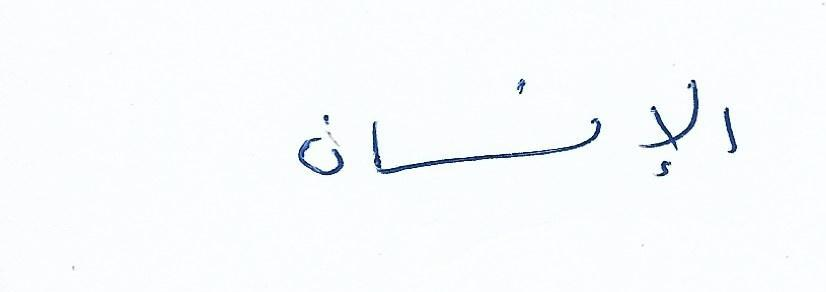 الإنسان